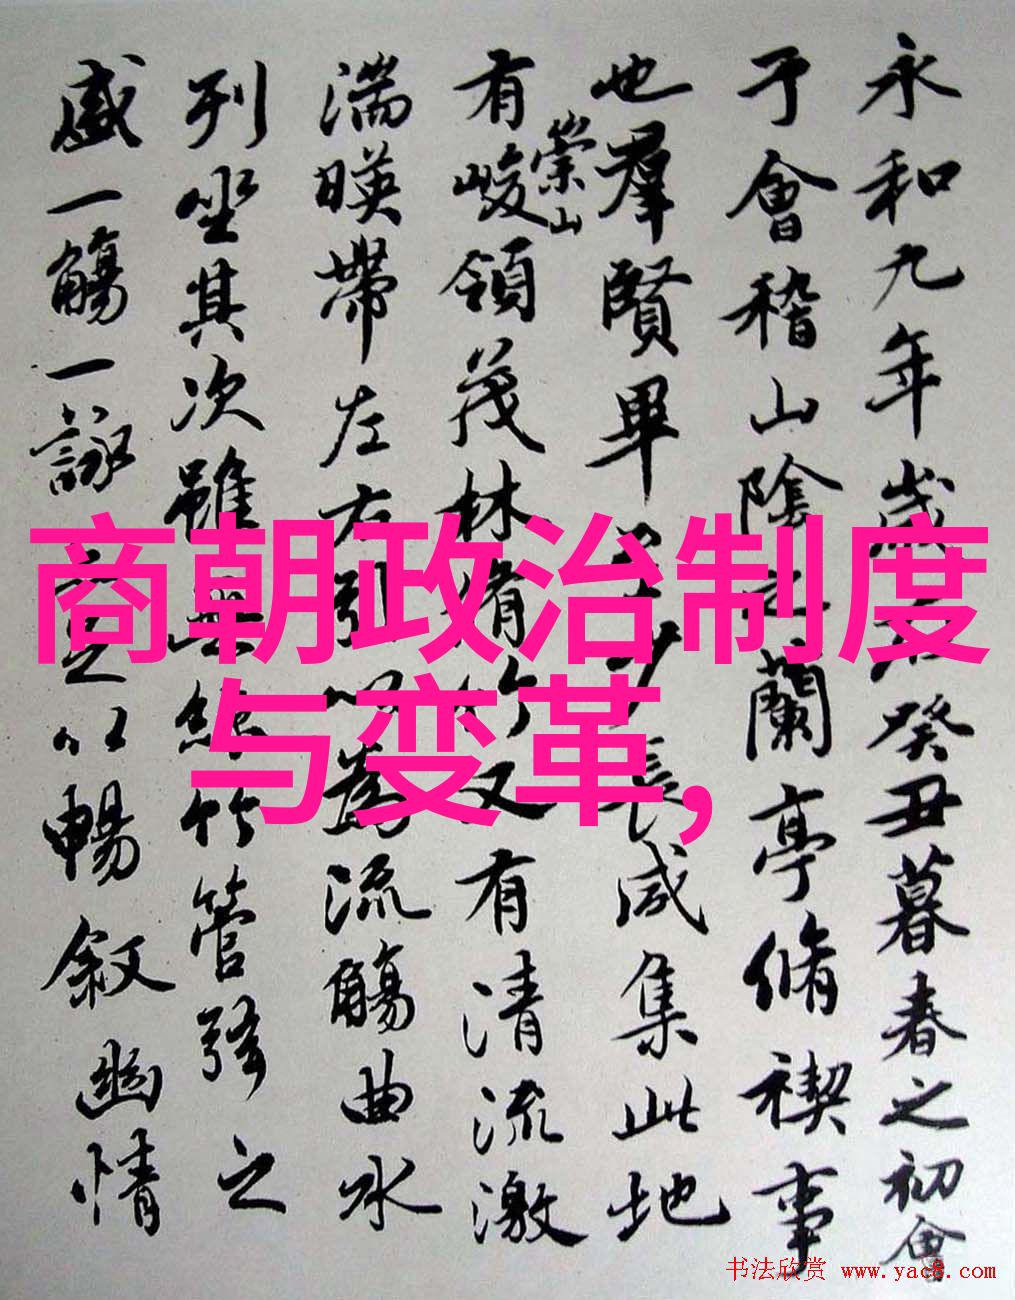 永和九年歲在癸丑暮春之初會
于會稽山陰之蘭亭脩禊事
也羣賢畢至少長咸集此地
有崇山峻領茂林脩竹又有清流激
湍暎帶左右引以為流觴曲水
列坐其次雖無絲竹管弦之
盛一觴一詠亦足以暢敘幽情
商朝政治制度
与变革,
书法欣赏 www.yac8.com